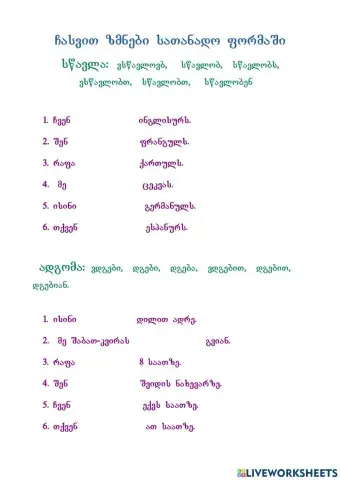 ჩასვით ზმნები სათანადო ფორმაში
სწავლა: ვსწავლოვბ, სწავლობ, სწავლობს,
ვსწავლობთ, სწავლობთ, სწავლობენ
1. ჩვენ ინგლისურს.
2. შენ ფრანგულს.
3. რაფა ქართულს.
4. მე ცეკვას.
5. ისინი გერმანულს.
6. თქვენ ესპანურს.
ადგომა: ვდგები, დგები, დგება, ვდგებით, დგებით,
დგებიან.
1. ისინი დილით ადრე.
2. მე შაბათ-კვირას გვიან.
3. რაფა 8 საათზე.
4. შენ შვიდის ნახევარზე.
5. ჩვენ ექვს საათზე.
6. თქვენ ათ საათზე.
LIVEWORKSHEETS